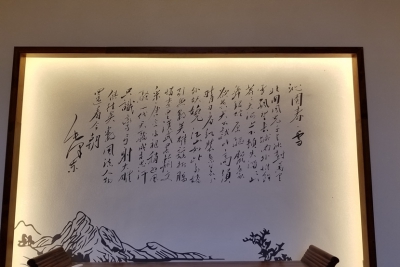 沁园春 雪
北国风光千里冰封万里
雪飘望长城内外惟余莽
莽大河上下顿失滔滔山
舞银蛇原驰蜡象欲与
天公试比高须
晴日看红装素裹分外
妖娆江山如此多娇
引无数英雄竞折腰
惜秦皇汉武略输文
采唐宗宋祖稍逊风
骚一代天骄成吉思汗
只识弯弓射大雕
俱往矣数风流人物
还看今朝
毛泽东